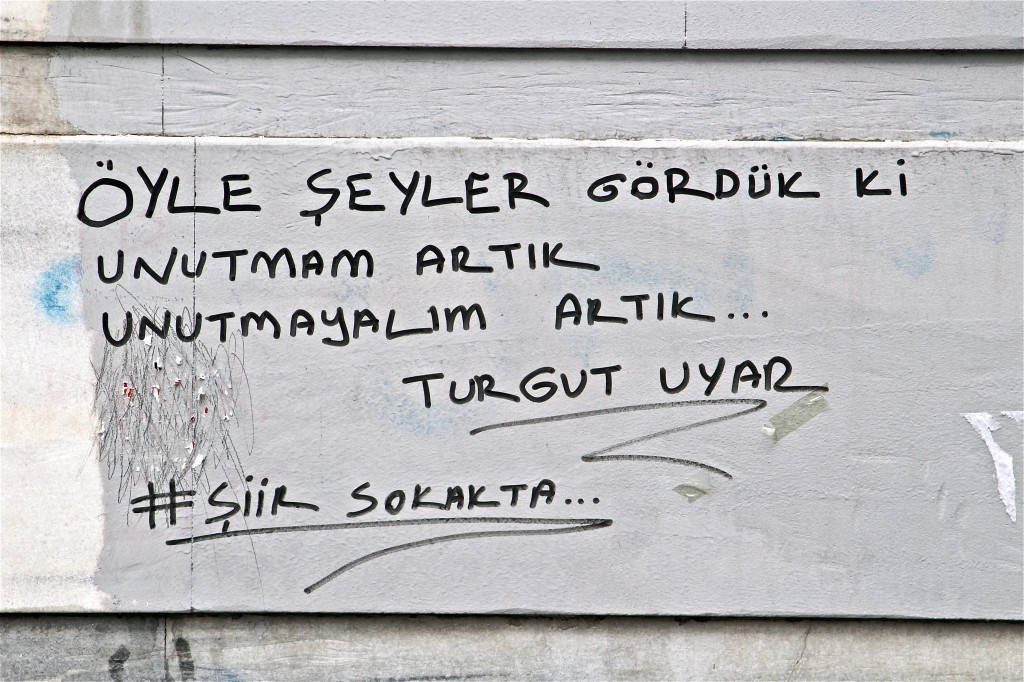 ÖYLE ŞEYLER GÖRDÜK Kİ
UNUTMAM ARTIK
UNUTMAYALIM ARTIK...
TURGUT UYAR
#ŞİİR SOKAKTA...